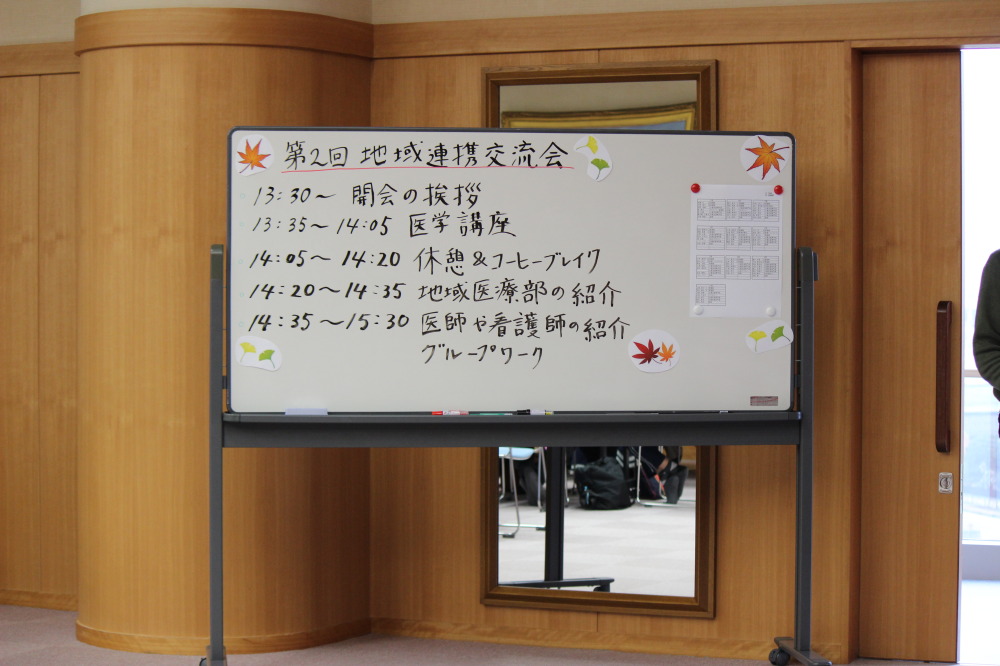 第2回 地域連携交流会
13:30～ 開会の挨拶
13:35～14:05 医学講座
14:05～14:20 休憩&コーヒーブレイク
14:20～14:35 地域医療部の紹介
14:35～15:30 医師や看護師の紹介
グループワーク